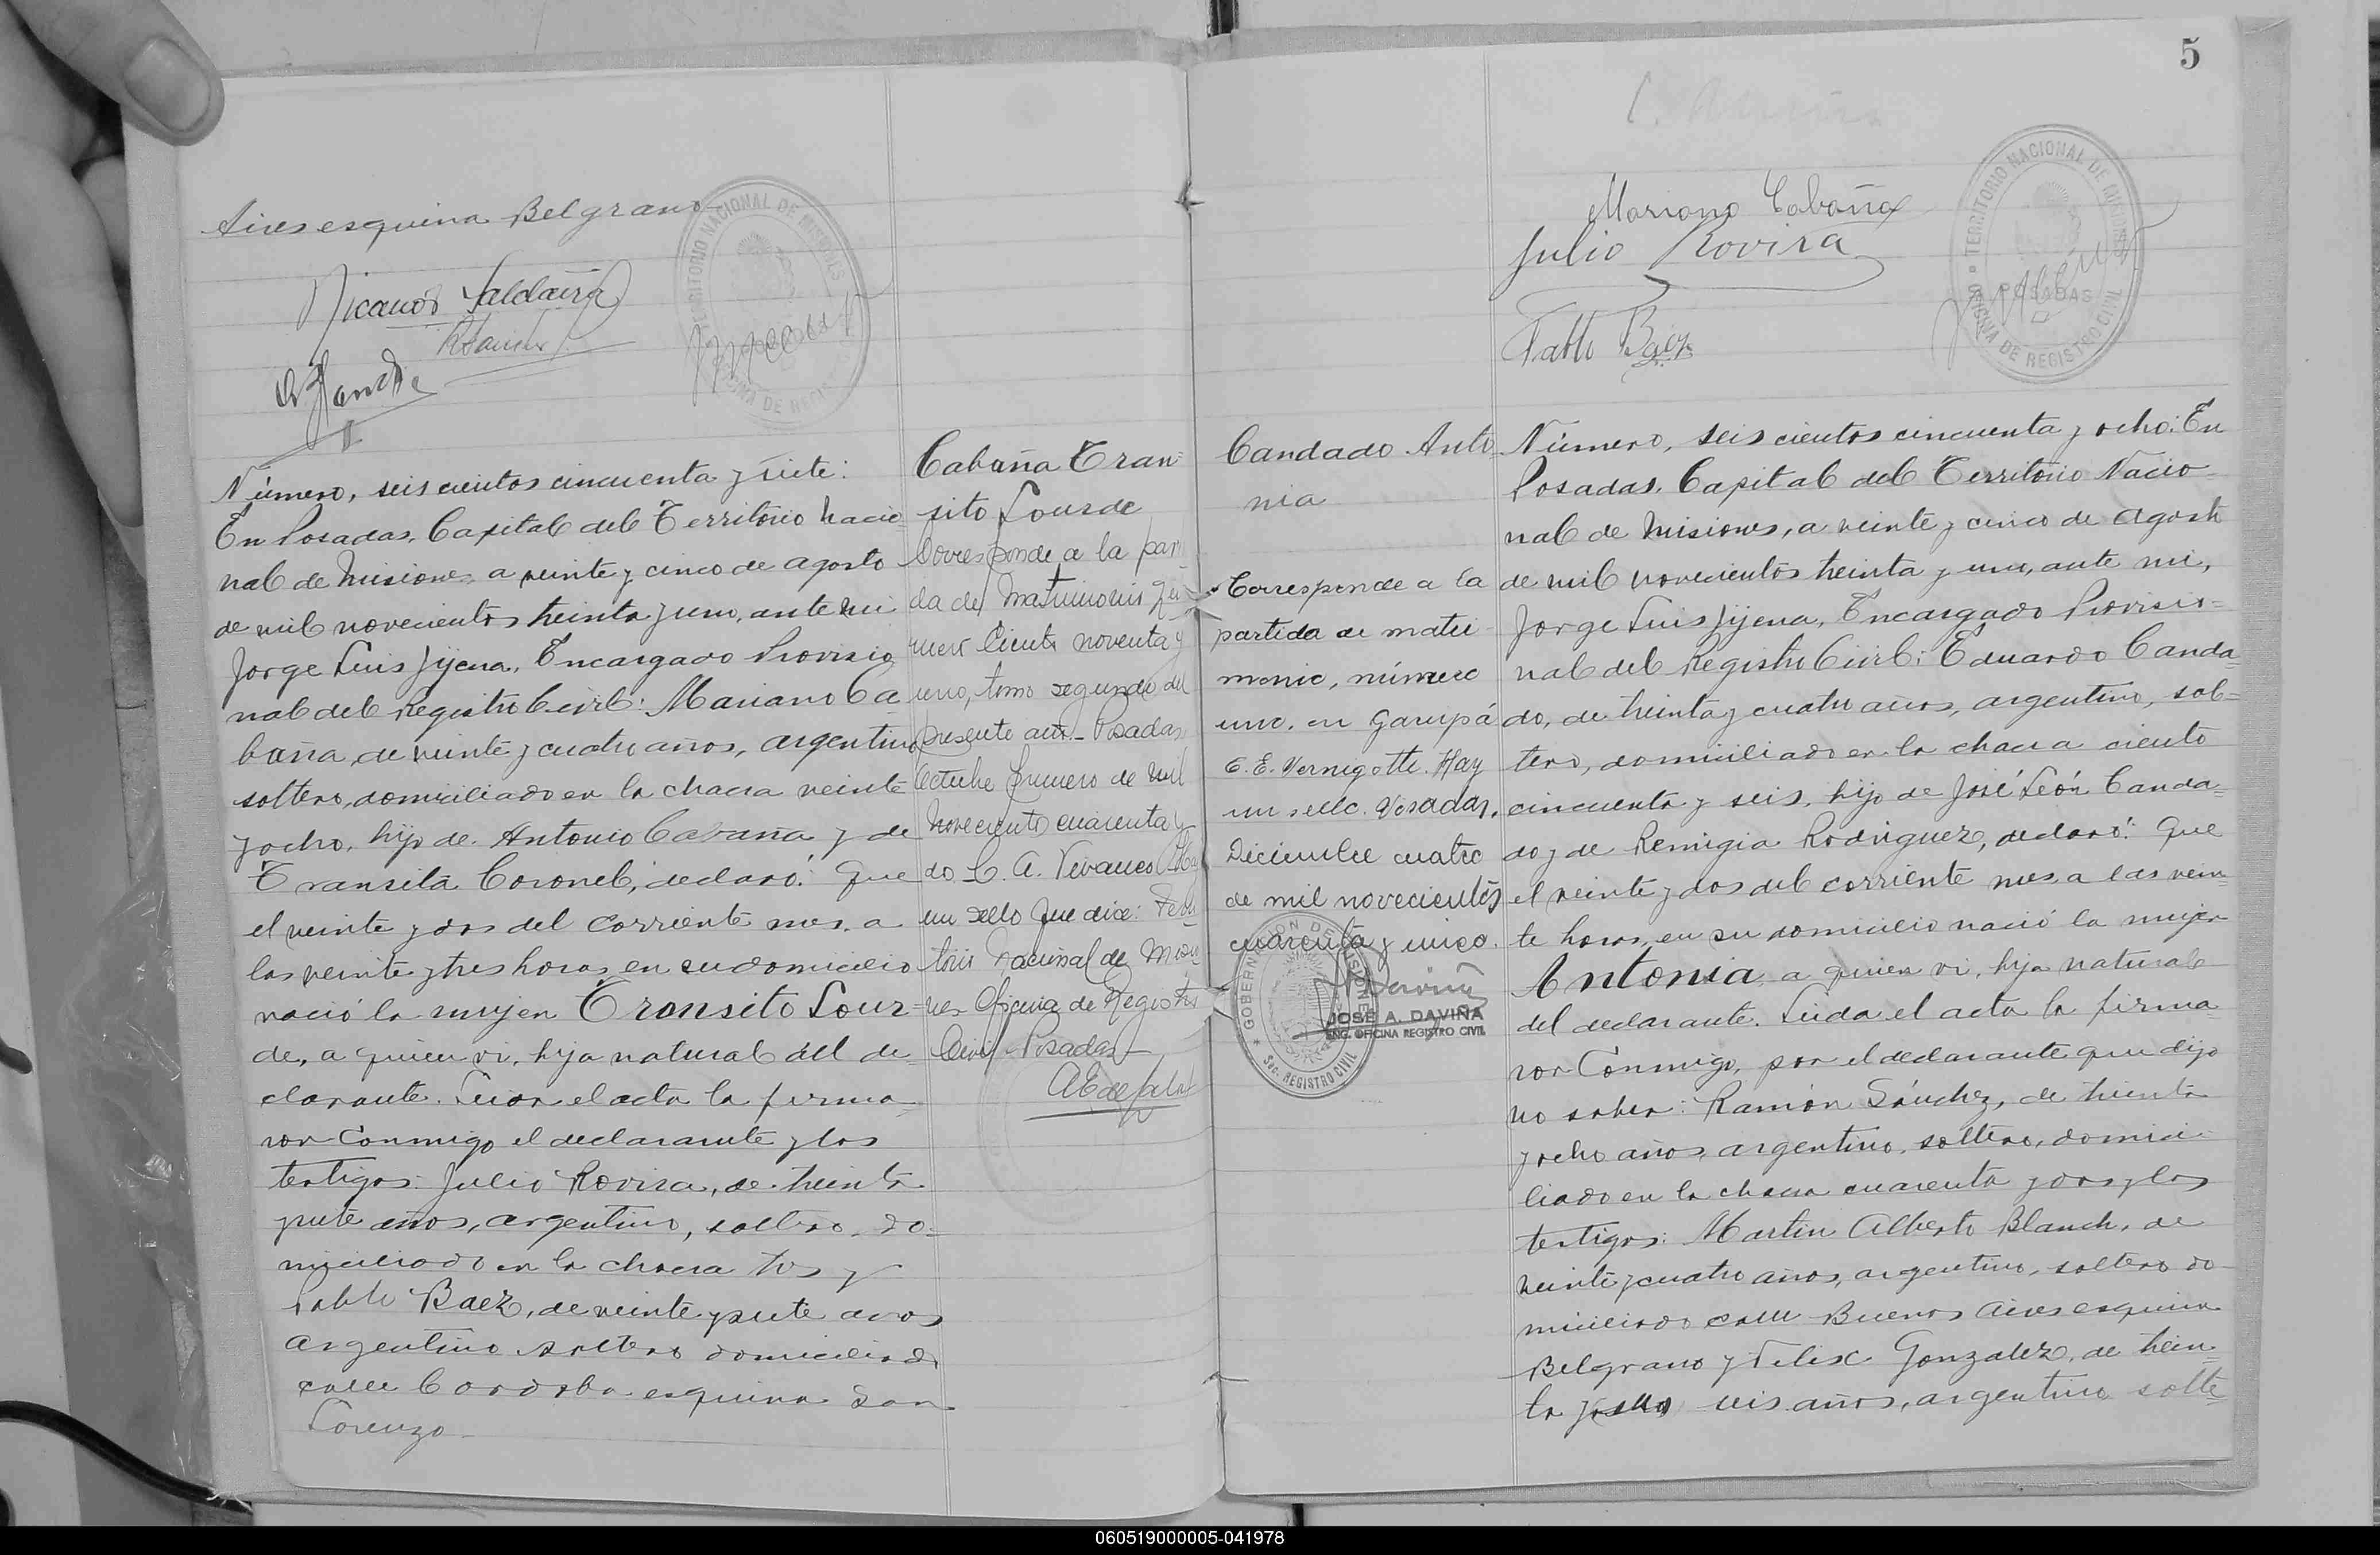 Aires esquina Belgrano
Nicanor Saldaña
Número, seis cientos cincuenta y siete:
En Posadas, Capital del Territorio nacio
nal de Misiones, a veinte y cinco de agosto
de mil novecientos treinta y uno, ante mi
Jorge Luis Jijena, Encargado Provisio
nal del Registro Civil: Mariano Ca
baña, de veinte y cuatro años, argentino
soltero, domiciliado en la chacra veinte
y ocho, hijo de Antonio Cabaña y de
Transita Coronel, declaró: Que
el veinte y dos del corriente mes, a
las veinte y tres horas, en su domicilio
nació la mujer Transito Lour=
de, a quien vi, hija natural del de
clarante. Leida el acta la firma=
ron conmigo el declarante y los
testigos: Julio Rovira, de treinta
y siete años, argentino, soltero, do=
miciliado en la chacra tres y
Pablo Baez, de veinte y siete años
argentino soltero domiciliado
calle Cordoba esquina San
Lorenzo
Cabaña Tran=
sito Lourde
Corresponde a la par
da de Matrimonio
mero Ciento noventa y
uno, tomo segundo del
presente año - Posadas
Octubre primero de mil
novecientos cuarenta y
do C. A. Vivanco Hay
un sello que dice: Terri
torio Nacional de Mision
nes Oficina de Registro
Civil Posadas
5
Mariano Cabaña
Julio Rovira
Pablo Baez
TERRITORIO NACIONAL DE MISIONES
POSADAS
OFICINA DE REGISTRO CIVIL
Candado Anto
nia
Corresponde a la
partida de matri-
monio, número
uno, en Garupá
C. E. Vernigotti. Hay
un sello. Posadas,
Diciembre cuatro
de mil novecientos
cuarenta y cinco.
GOBERNACION DE MISIONES
Sec. REGISTRO CIVIL
JOSE A. DAVIÑA
ENC. OFICINA REGISTRO CIVIL
Número, seis cientos cincuenta y ocho: En
Posadas, Capital del Territorio Nacio-
nal de Misiones, a veinte y cinco de agosto
de mil novecientos treinta y uno, ante mi,
Jorge Luis Jijena, Encargado Provisio=
nal del Registro Civil: Eduardo Canda=
do, de treinta y cuatro años, argentino, sol=
tero, domiciliado en la chacra ciento
cincuenta y seis, hijo de José León Canda=
do y de Remigia Rodriguez, declaró: Que
el veinte y dos del corriente mes, a las vein=
te horas, en su domicilio nació la mujer
Antonia, a quien vi, hija natural
del declarante. Leida el acta la firma
ron conmigo, por el declarante que dijo
no saber: Ramón Sánchez, de treinta
y ocho años, argentino, soltero, domici-
liado en la chacra cuarenta y dos y los
testigos: Martin Alberto Blanch, de
veinte y cuatro años, argentino, soltero do-
miciliado calle Buenos Aires esquina
Belgrano y Felix Gonzalez, de trein=
ta y seis años, argentino solte=
060519000005-041978